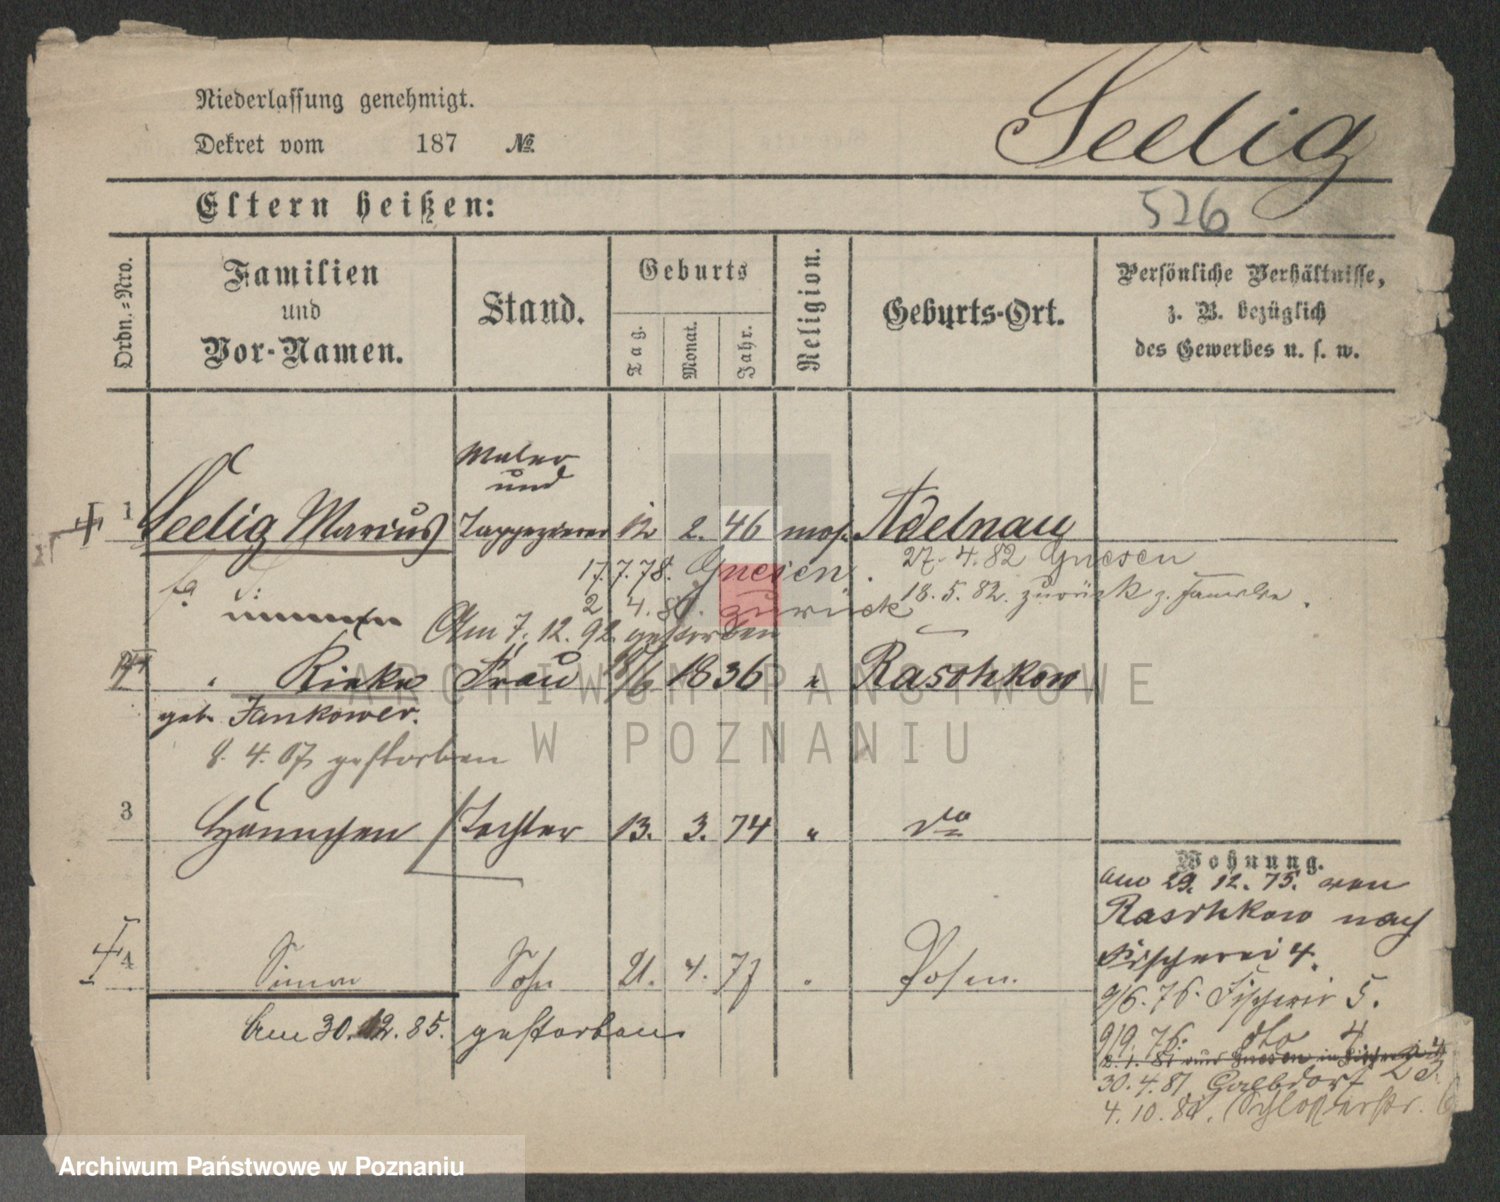 Niederlassung genehmigt.
Dekret vom 187 №
Seelig
Eltern heißen:
526
Ordn.-Nro.
Familien und Vor-Namen.
Stand.
Geburts
Tag.
Monat.
Jahr.
Religion.
Geburts-Ort.
Persönliche Verhältnisse,
z. B. bezüglich
des Gewerbes u. s. w.
Maler
und
1 Seelig Marius Tappezierer 12 2. 46 mos. Adelnau
17.7.78. Gnesen. 27.4.82 Gnesen
2 4. 81. zurück 18.5.82. zurück z. Familie.
Am 7.12.92 gestorben
" Rieke Frau 18/6 1836 " Raschkow
geb. Jankower.
8. 4. 07 gestorben
3 Hännchen Tochter 13. 3. 74 " do
Wohnung.
am 29.12.75. von
Raschkow nach
Fischerei 4.
4 Simon Sohn 21. 4. 77 " Posen.
9/6.76. Fischerei 5.
Am 30.12.85. gestorben
9/9.76. dto 4
30.4.81.
4.10.84. Schlosserstr. 6
ARCHIWUM PAŃSTWOWE
W POZNANIU
Archiwum Państwowe w Poznaniu